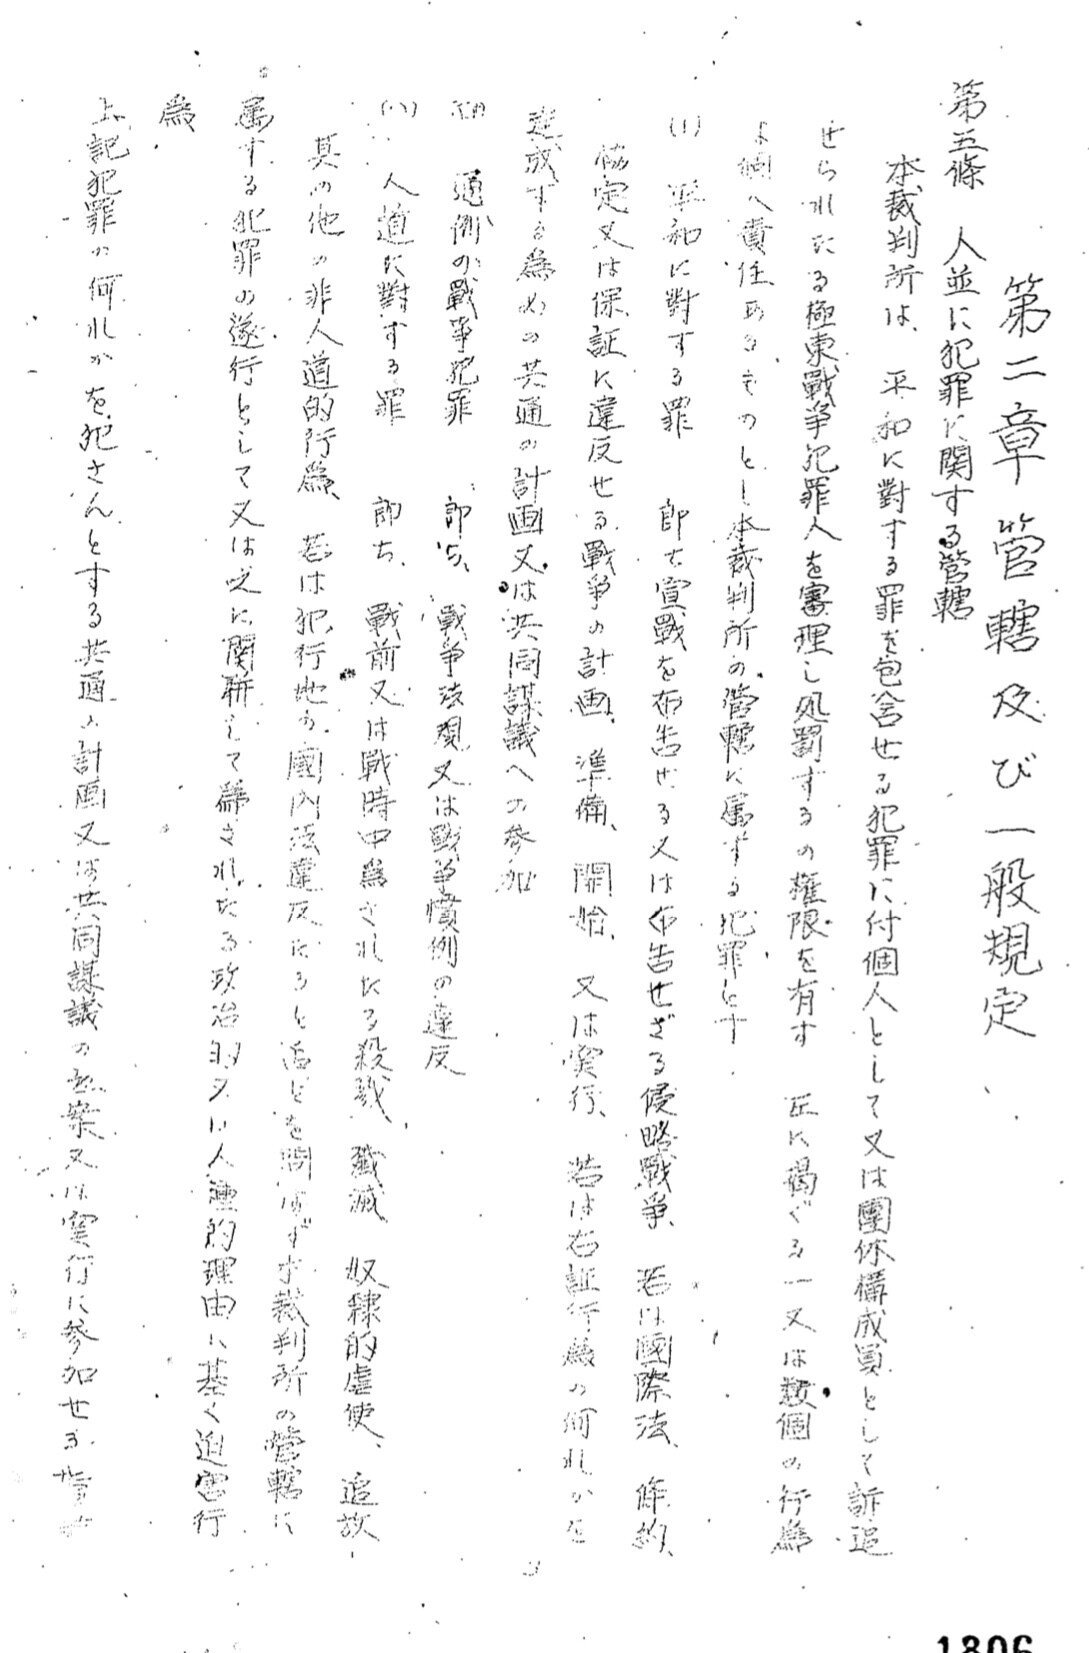 第二章 管轄及び一般規定
第五條 人並に犯罪に関する管轄
本裁判所は、平和に對する罪を包含せる犯罪に付個人として又は團体構成員として訴追
せられたる極東戰爭犯罪人を審理し処罰するの権限を有す 左に掲ぐる一又は数個の行為
は個人責任あるものとし本裁判所の管轄に属する犯罪とす
平和に對する罪 即ち宣戰を布告せる又は布告せざる侵略戰爭、若は國際法、條約、
協定又は保証に違反せる戰爭の計画、準備、開始、又は実行、若は右行為の何れかを
達成する為めの共通の計画又は共同謀議への参加
(ロ) 通例の戰爭犯罪 即ち、戰爭法規又は戰爭慣例の違反
(ハ) 人道に對する罪 即ち、戰前又は戰時中為されたる殺戮、殲滅、奴隷的虐使、追放
其の他の非人道的行為、若は犯行地の國內法違反たると否とを問はず本裁判所の管轄に
属する犯罪の遂行として又は之に関聯して為されたる政治的又は人種的理由に基く迫害行
為
上記犯罪の何れかを犯さんとする共通の計画又は共同謀議の立案又は実行に参加せる
1806